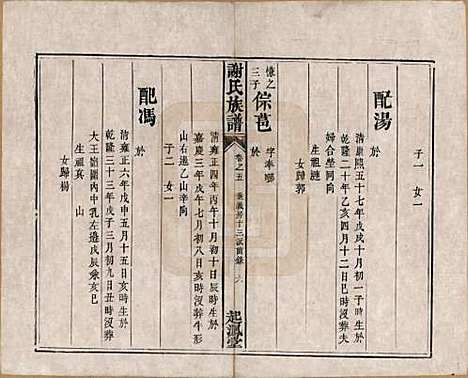 子一 女一
配湯
清康熙五十七年戊戌十月初一子時生於
乾隆二十年乙亥四月十二日巳時没葬夫
婦合塋同向
生祖漣
女歸郭
懷之三子
倧芑
字奉
於
清雍正四年丙午十月初十日辰時生於
嘉慶三年戊午七月初八日亥時没葬牛形
山右邊乙山辛向
子二 女一
謝氏族譜
卷之五
起鳳堂
配馮
於
清雍正六年戊申五月十五日亥時生於
乾隆三十三年戊子三月初九日丑時没葬
大王嶺圍內中乳左邊戊辰兼亥巳
生祖真 山
女歸楊